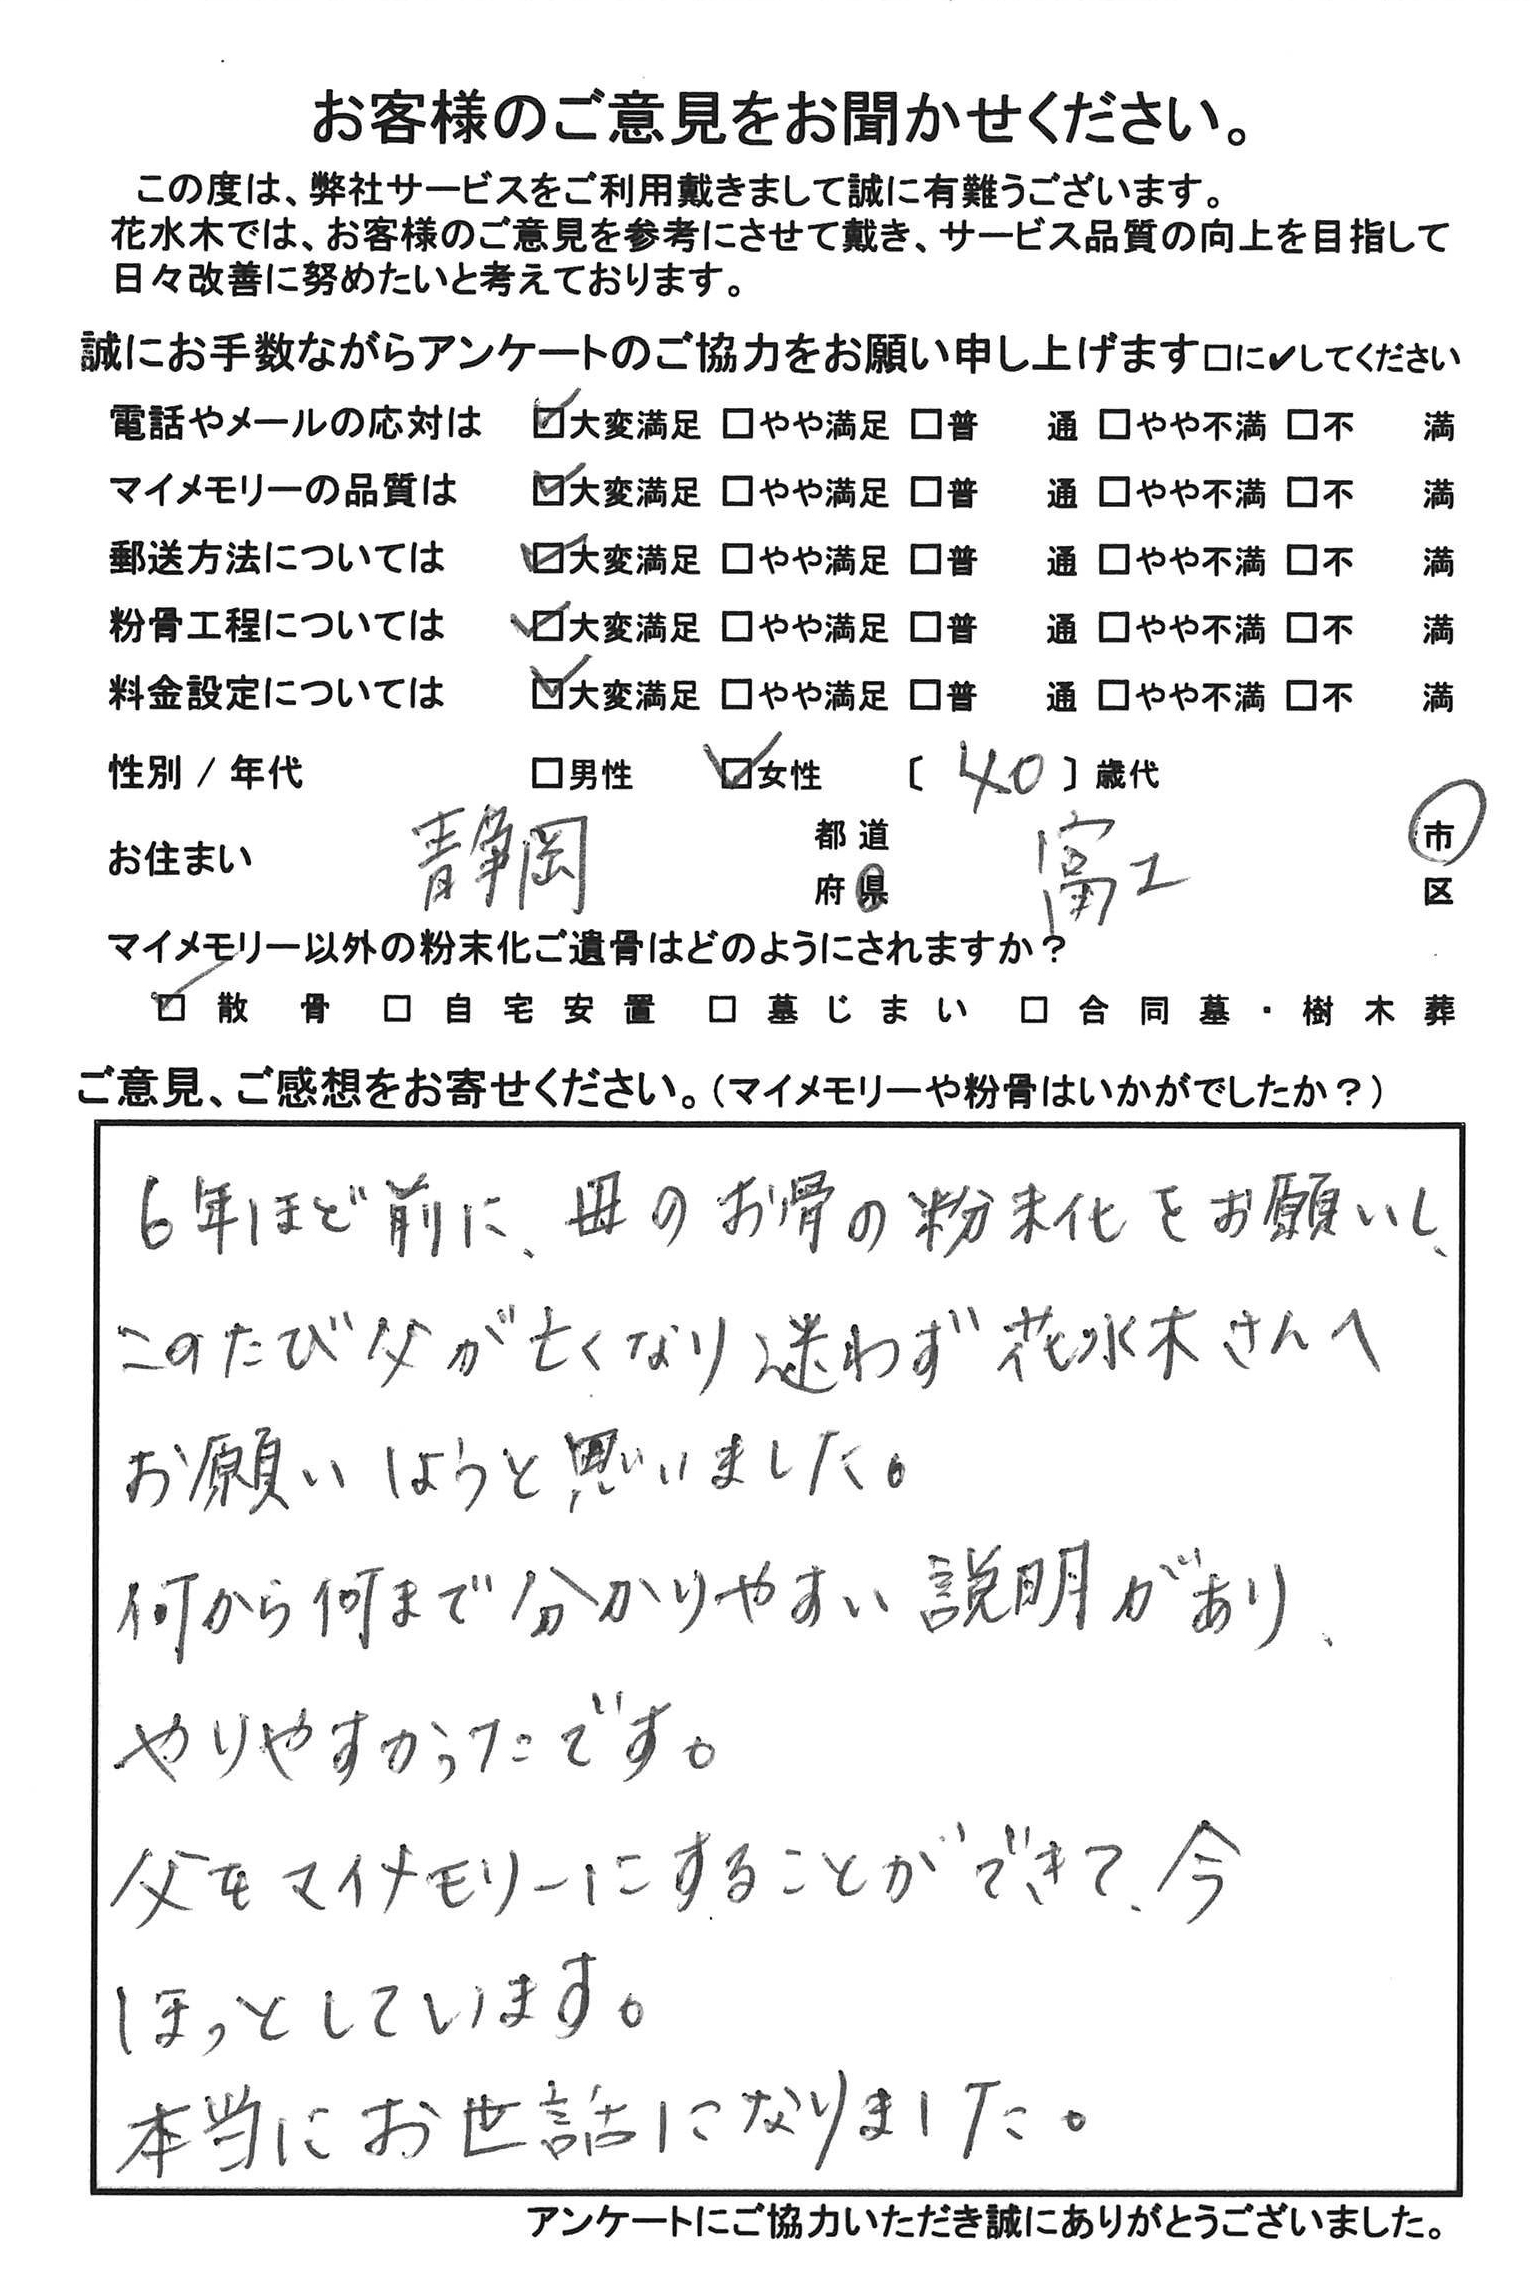 お客様のご意見をお聞かせください。
この度は、弊社サービスをご利用戴きまして誠に有難うございます。
花水木では、お客様のご意見を参考にさせて戴き、サービス品質の向上を目指して
日々改善に努めたいと考えております。
誠にお手数ながらアンケートのご協力をお願い申し上げます□に✔してください
電話やメールの応対は ☑大変満足 □やや満足 □普 通 □やや不満 □不 満
マイメモリーの品質は ☑大変満足 □やや満足 □普 通 □やや不満 □不 満
郵送方法については ☑大変満足 □やや満足 □普 通 □やや不満 □不 満
粉骨工程については ☑大変満足 □やや満足 □普 通 □やや不満 □不 満
料金設定については ☑大変満足 □やや満足 □普 通 □やや不満 □不 満
性別 / 年代 □男性 ☑女性 〔 40 〕歳代
お住まい 静岡 都道府県 富士 市区
マイメモリー以外の粉末化ご遺骨はどのようにされますか？
☑ 散骨 □ 自宅安置 □ 墓じまい □ 合同墓・樹木葬
ご意見、ご感想をお寄せください。（マイメモリーや粉骨はいかがでしたか？）
6年ほど前に、母のお骨の粉末化をお願いし、
このたび父が亡くなり迷わず花水木さんへ
お願いしようと思いました。
何から何まで分かりやすい説明があり、
やりやすかったです。
父をマイメモリーにすることができて、今
ほっとしています。
本当にお世話になりました。
アンケートにご協力いただき誠にありがとうございました。